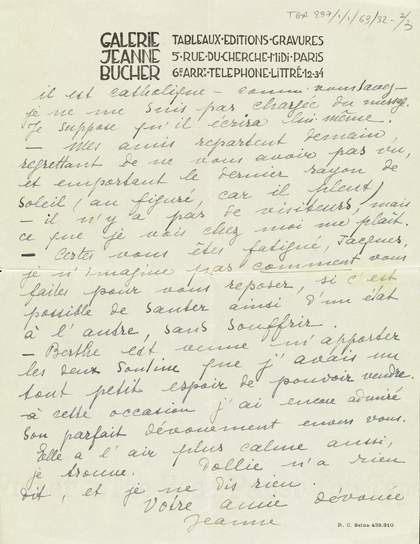 TGA 897/1/1/69/32 - 2/3
GALERIE JEANNE BUCHER
TABLEAUX · EDITIONS · GRAVURES
5 · RUE · DU · CHERCHE · MIDI · PARIS
6e ARRT · TELEPHONE · LITRÉ · 12-34
il est catholique - comme vous savez -
je ne me suis pas chargée du message
Je suppose qu'il écrira lui-même.
- Mes amis repartent demain,
regrettant de ne vous avoir pas vu,
et emportant le dernier rayon de
soleil (au figuré, car il pleut)
- il n'y a pas de visiteurs, mais
ce que je vois chez moi me plaît.
- Certes vous êtes fatigué, Jacques,
je n'imagine pas comment vous
faites pour vous reposer, si c'est
possible de sauter ainsi d'un état
à l'autre, sans souffrir.
- Berthe est venue m'apporter
les deux Soutine que j'avais un
tout petit espoir de pouvoir vendre.
à cette occasion j'ai encore admiré
son parfait dévouement envers vous.
Elle a l'air plus calme aussi,
je trouve. Dollie n'a rien
dit, et je ne dis rien.
Votre amie dévouée
Jeanne
R. C. Seine 439.310